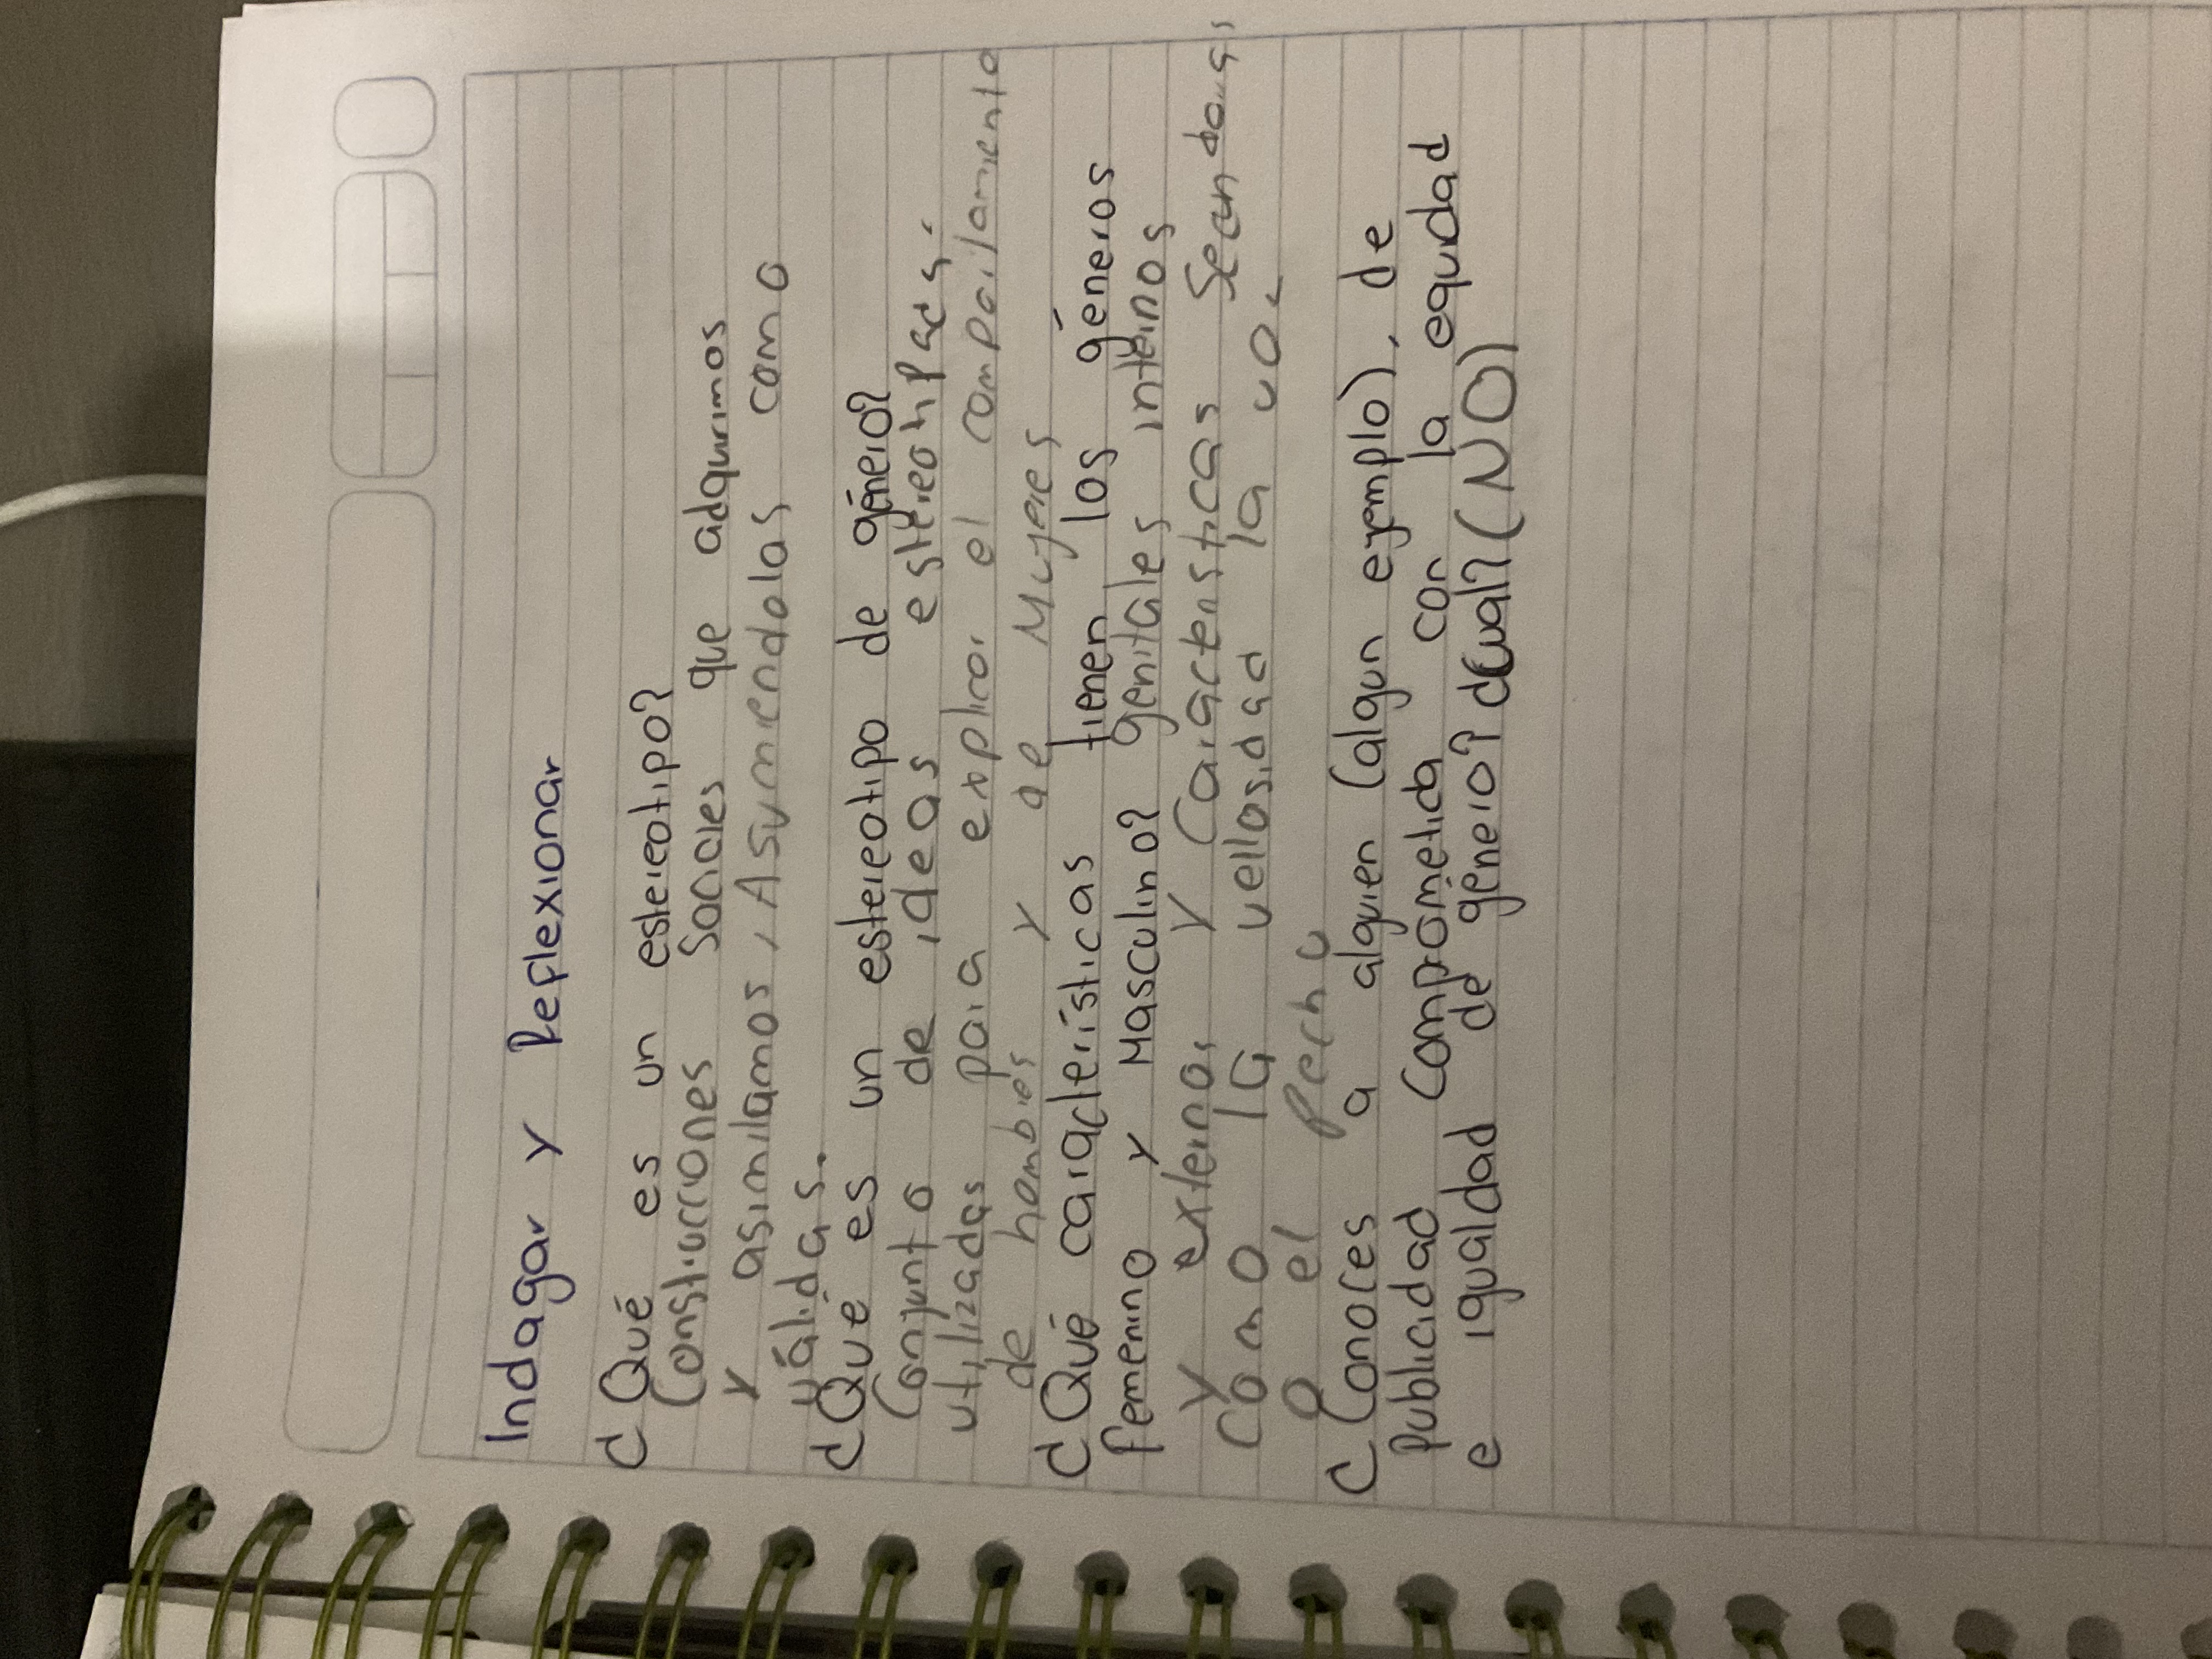 Indagar y Reflexionar
¿Qué es un estereotipo?
Construcciones sociales que adquirimos
y asimilamos, Asumiendolas como
válidas.
¿Qué es un estereotipo de género?
Conjunto de ideas
utilizadas para explicar el comportamiento
de hombres y de Mujeres
¿Qué características tienen los géneros
femenino y Masculino? genitales internos
y externos y Características Secundarias
como la vellosidad la voz
o el Pecho
¿Conoces a alguien (algun ejemplo), de
publicidad comprometida con la equidad
e igualdad de género? ¿cual? (NO)